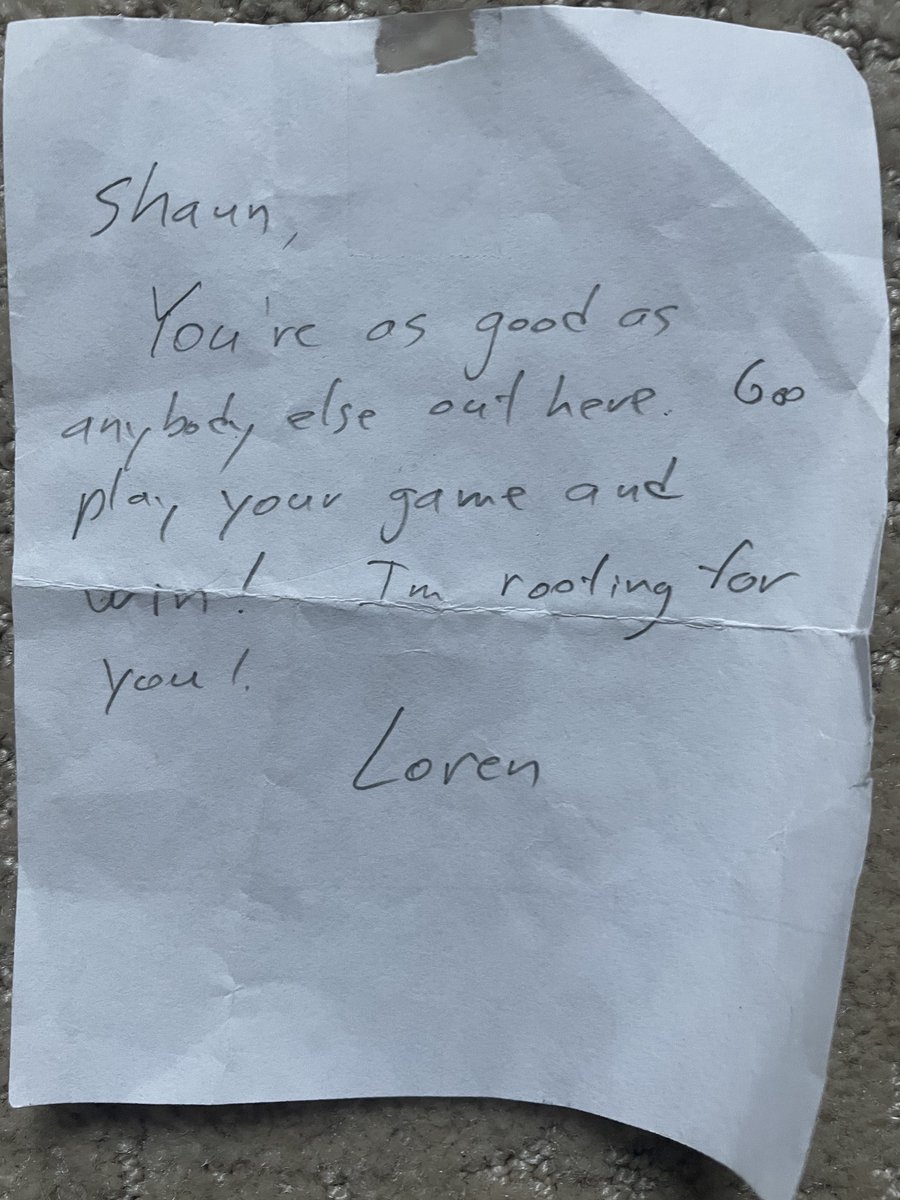 Shaun,
You're as good as
anybody else out here. Goo
play your game and
win! I'm rooting for
you!
Loren